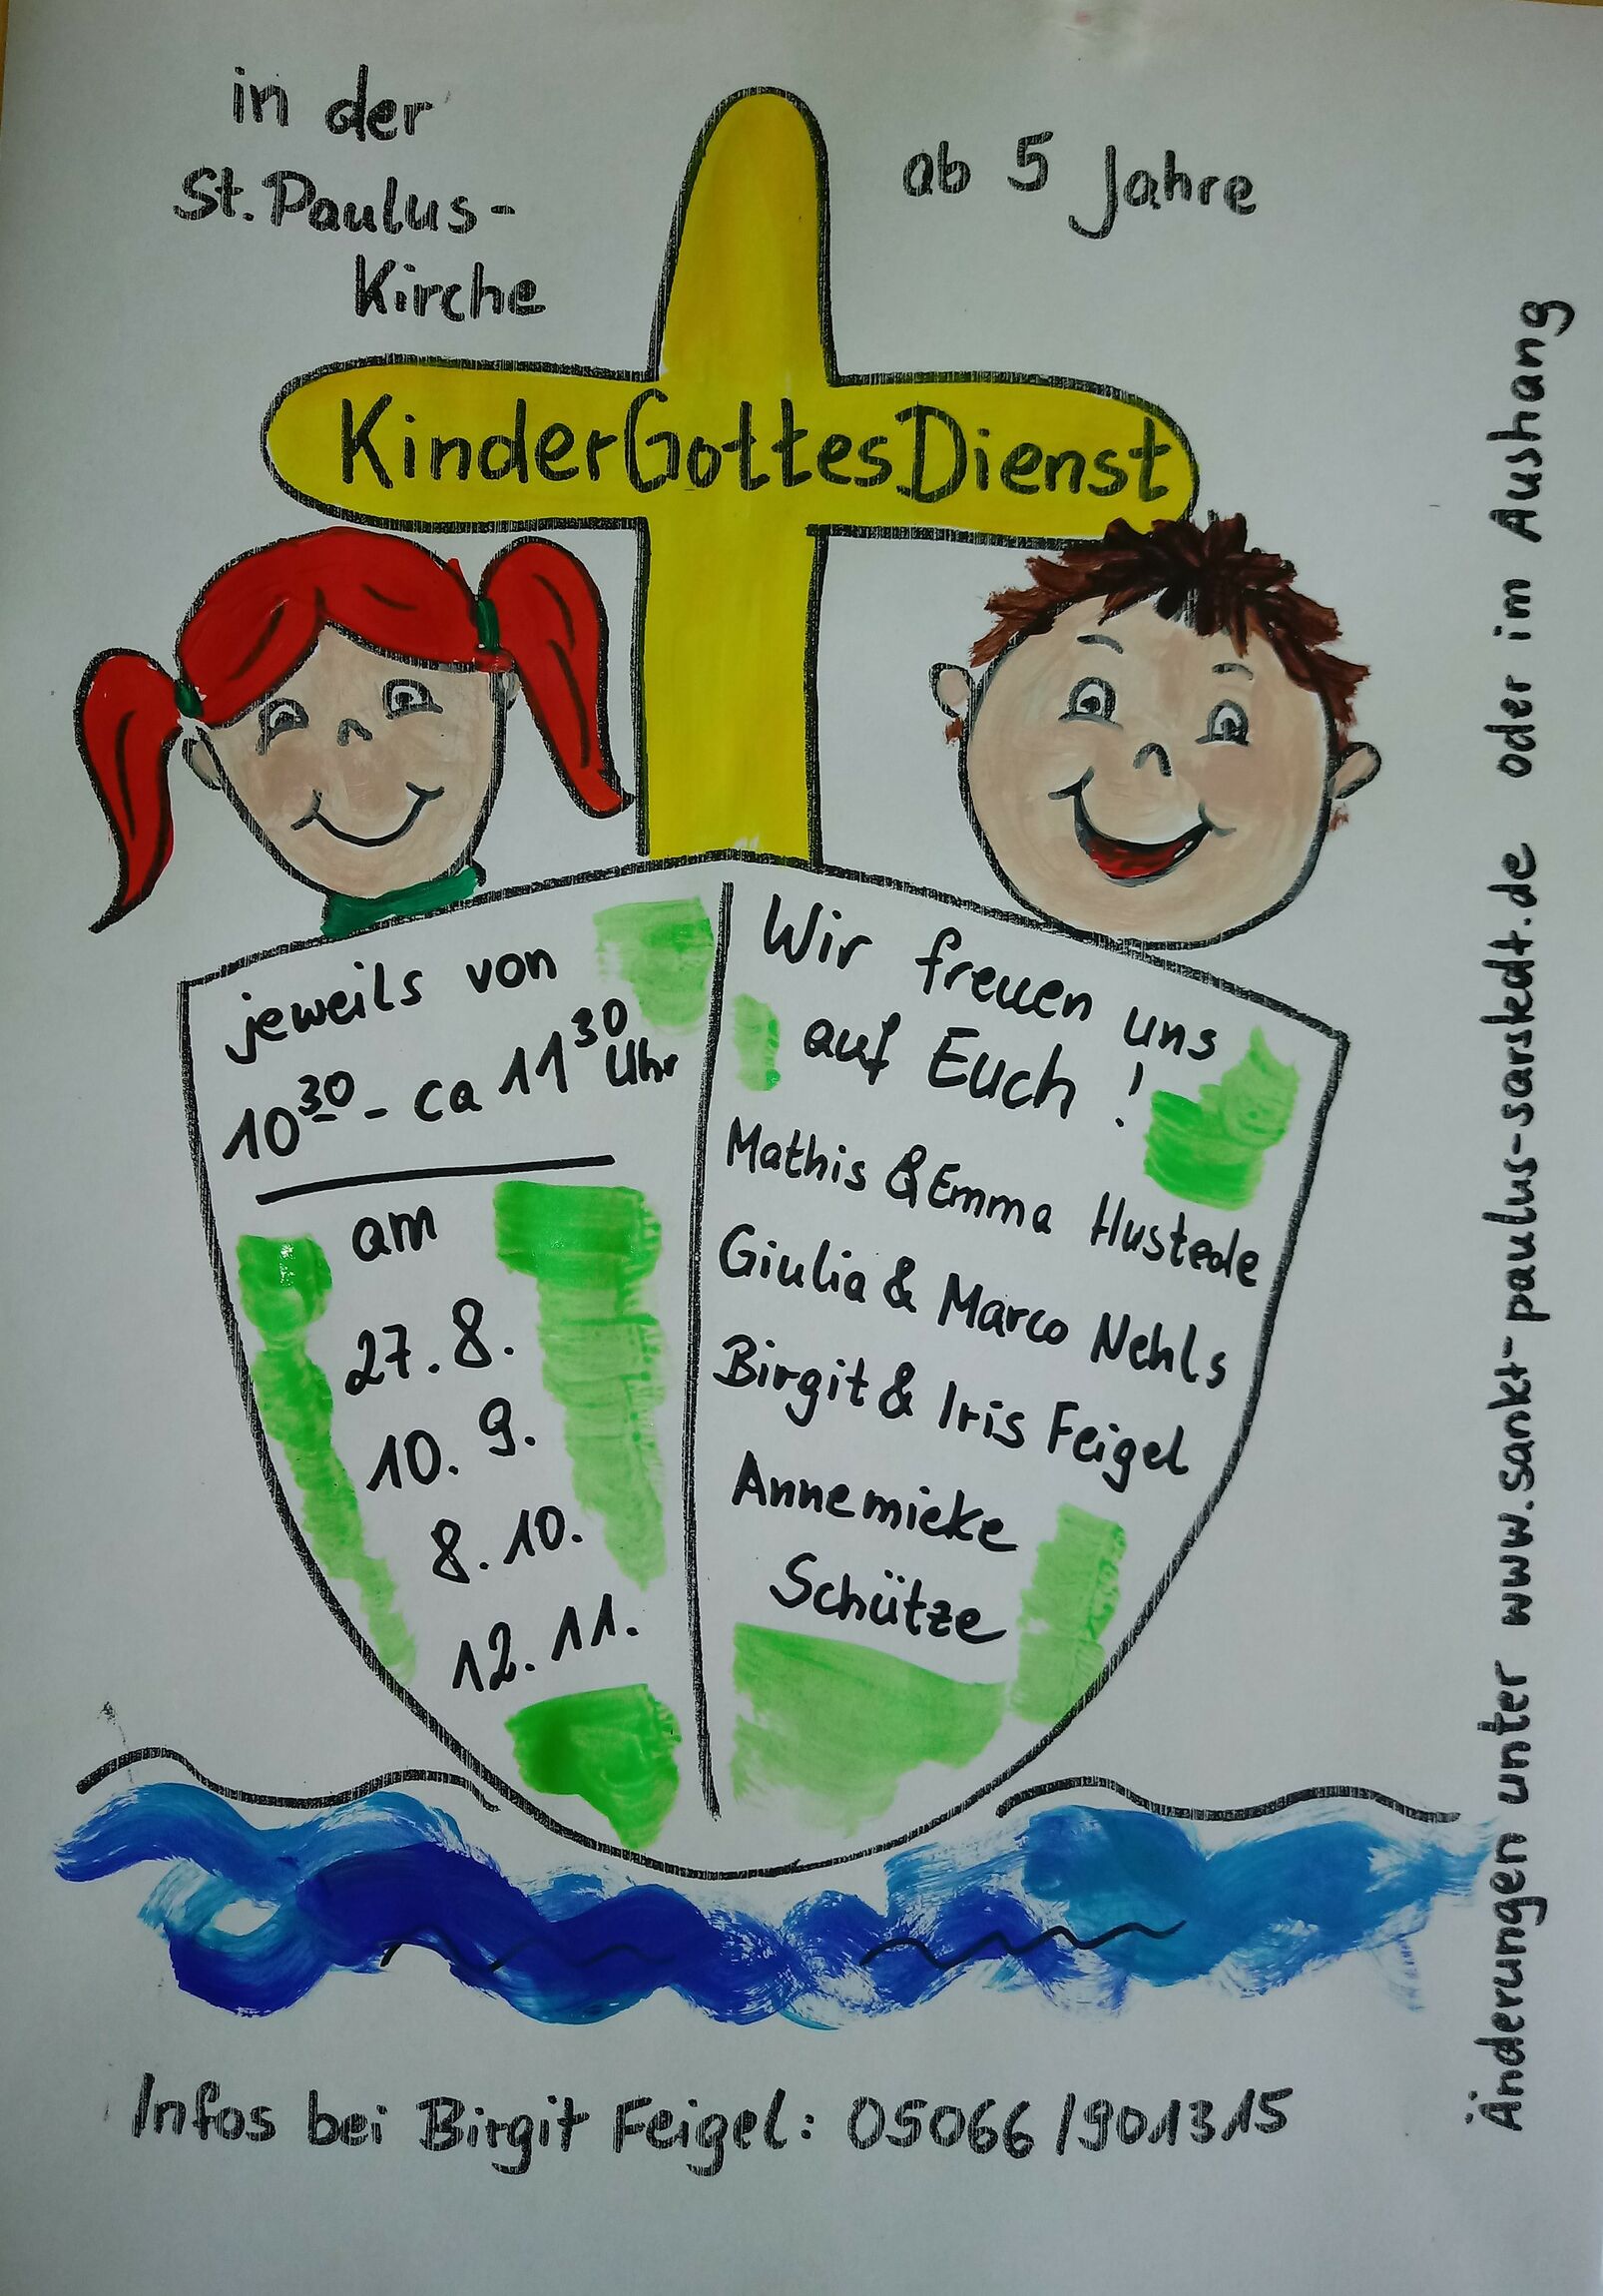 in der
St. Paulus-
Kirche
ab 5 Jahre
KinderGottesDienst
jeweils von
10 30 - ca 11 30 Uhr
am
27.8.
10.9.
8.10.
12.11.
Wir freuen uns
auf Euch!
Mathis & Emma Hustede
Giulia & Marco Nehls
Birgit & Iris Feigel
Annemieke
Schütze
Infos bei Birgit Feigel: 05066/901315
Änderungen unter www.sankt-paulus-sarstedt.de oder im Aushang